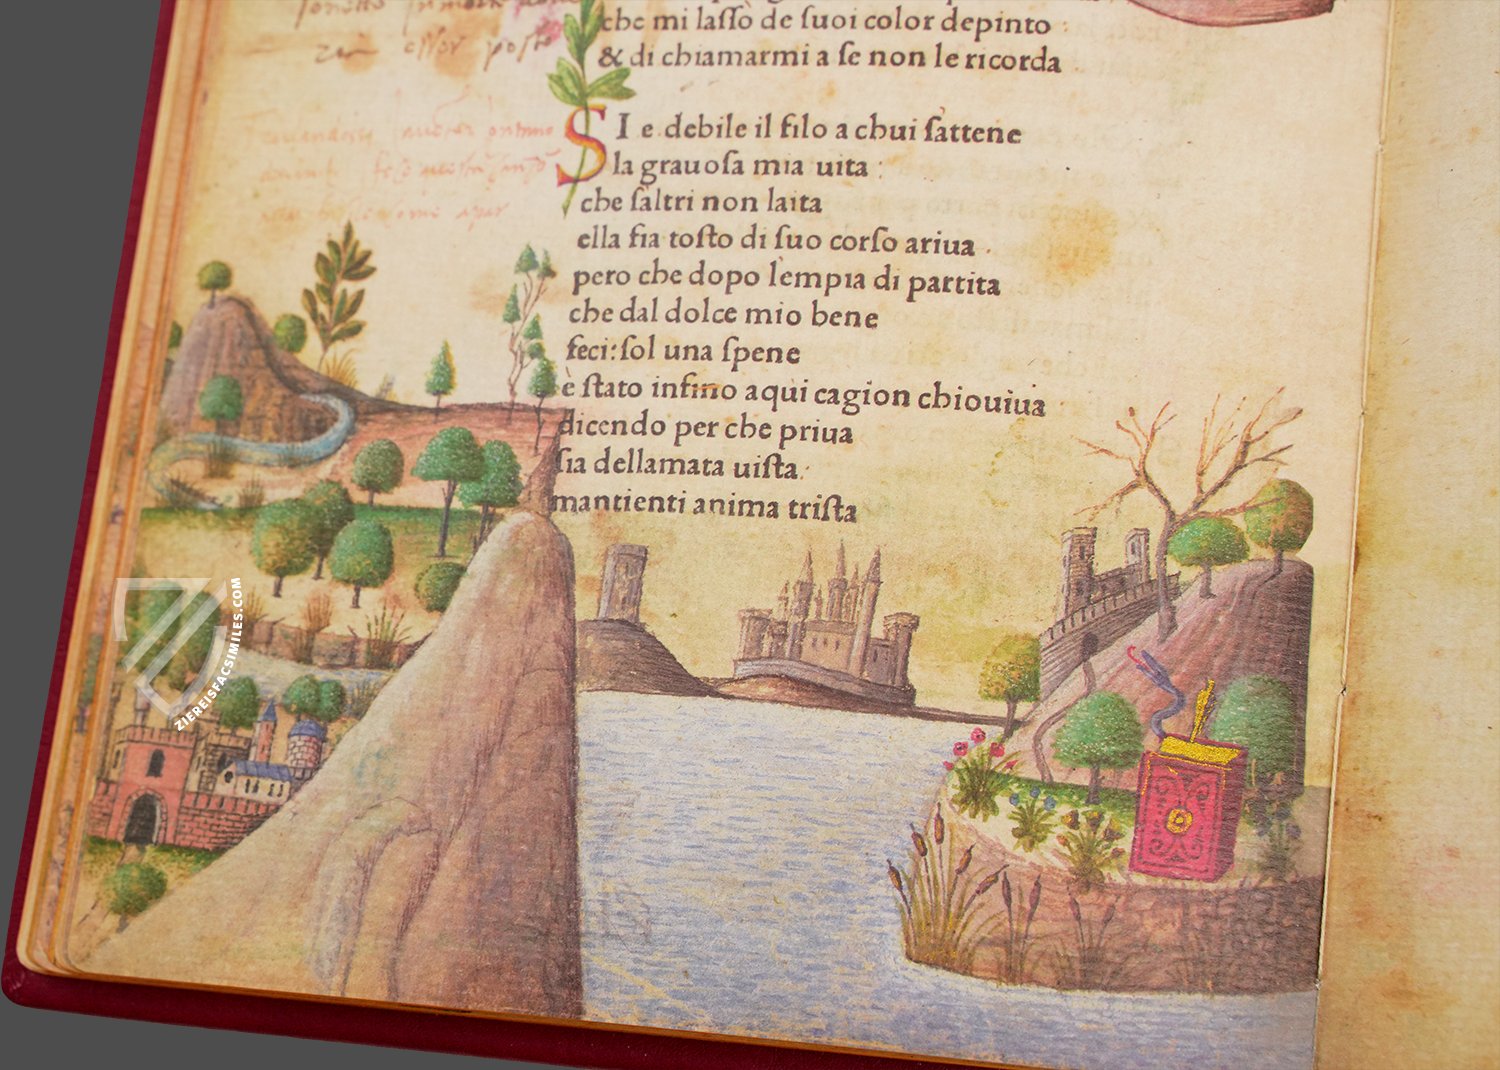 che mi lassò de suoi color depinto :
& di chiamarmi a se non le ricorda
SI e debile il filo a chui sattene
la grauosa mia uita :
che saltri non laita
ella fia tosto di suo corso ariua .
pero che dopo lempia di partita
che dal dolce mio bene
feci: sol una spene
è stato infino aqui cagion chiouiua
dicendo per che priua
sia dellamata uista:
mantienti anima trista
ZIEREISFACSIMILES.COM